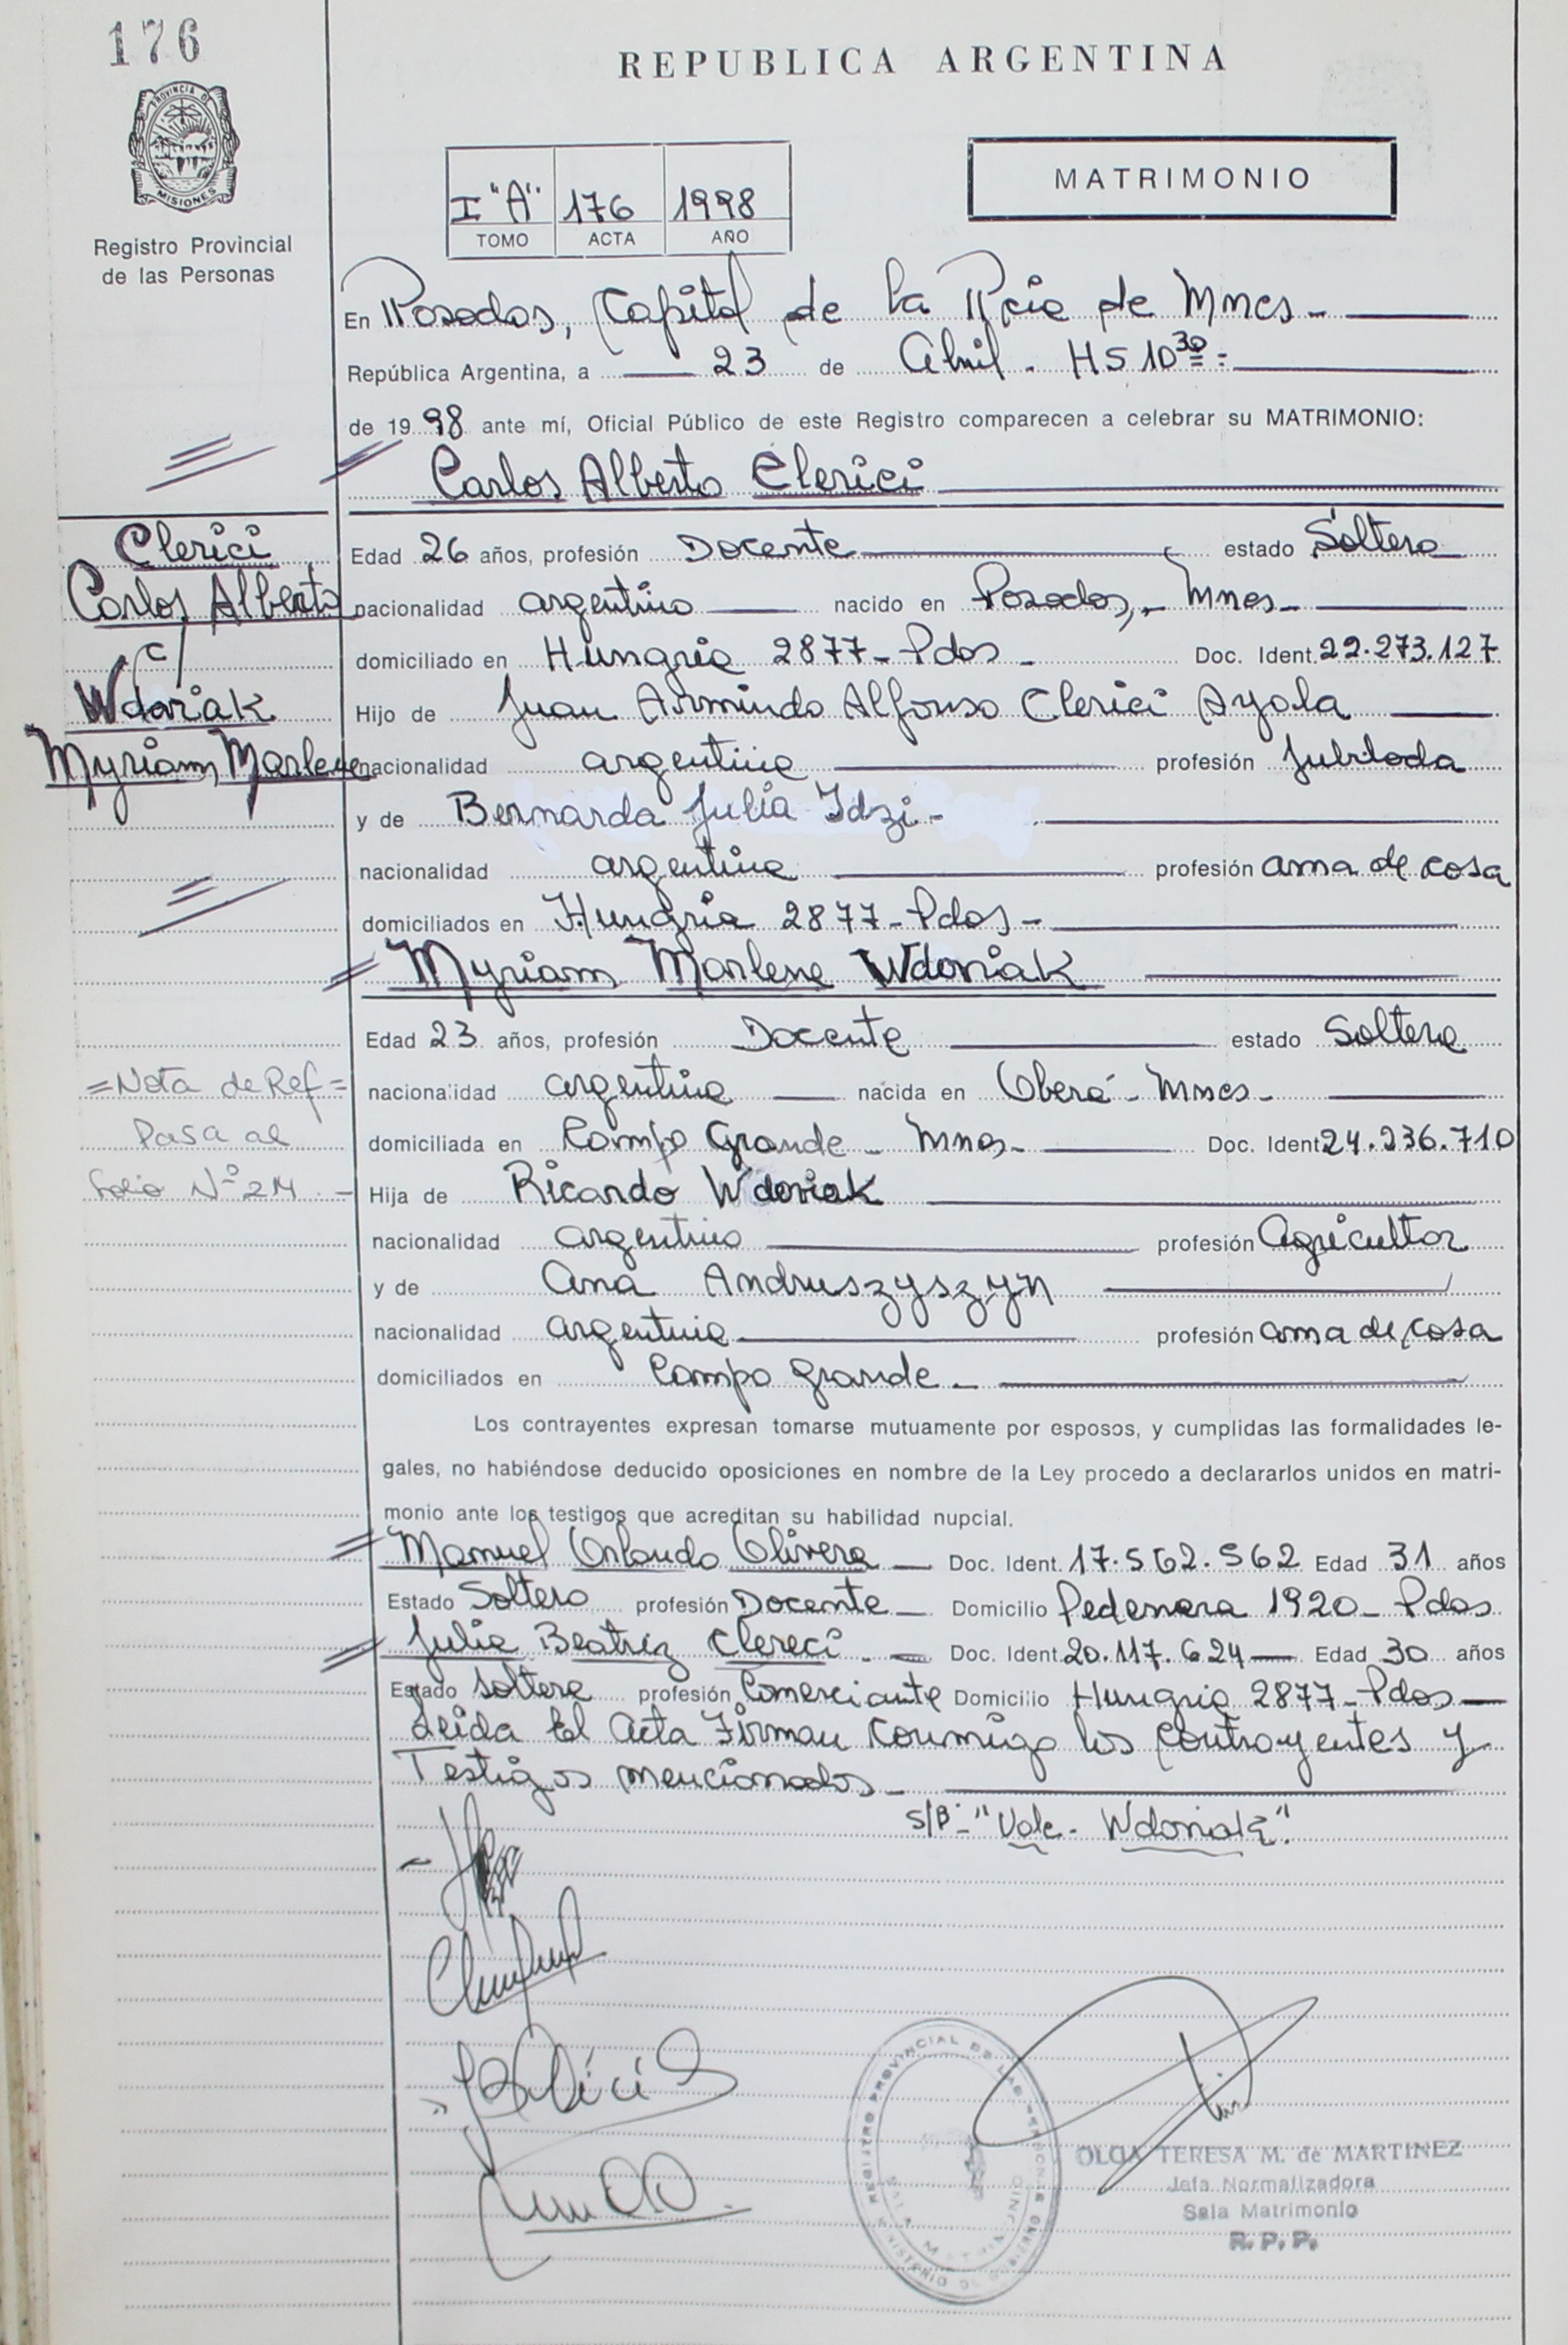 176
REPUBLICA ARGENTINA
PROVINCIA DE
MISIONES
Registro Provincial
de las Personas
I "A" 176 1998
TOMO ACTA AÑO
MATRIMONIO
En Posadas, Capital de la Pcia de Mnes-
República Argentina, a 23 de Abril. HS 10 30=
de 1998 ante mí, Oficial Público de este Registro comparecen a celebrar su MATRIMONIO:
Carlos Alberto Clerici
Clerici
Carlos Alberto
c/
Wdoviak
Myriam Marlene
Edad 26 años, profesión Docente estado Soltero
nacionalidad argentino nacido en Posadas,- Mnes-
domiciliado en Hungría 2877- Pdas- Doc. Ident. 22.273.127
Hijo de Juan Armindo Alfonso Clerici Ayala
nacionalidad argentina profesión Jubilada
y de Bernarda Julia Idzi-
nacionalidad argentina profesión ama de casa
domiciliados en Hungría 2877- Pdas-
Myriam Marlene Wdoviak
Edad 23 años, profesión Docente estado Soltera
nacionalidad argentina nacida en Oberá- Mnes-
domiciliada en Campo Grande- Mnes- Doc. Ident. 24.236.710
Hija de Ricardo Wdoviak
=Nota de Ref=
Pasa al
Folio Nº 214
nacionalidad argentino profesión Agricultor
y de Ana Andruszyszyn
nacionalidad argentina profesión ama de casa
domiciliados en Campo Grande-
Los contrayentes expresan tomarse mutuamente por esposos, y cumplidas las formalidades le-
gales, no habiéndose deducido oposiciones en nombre de la Ley procedo a declararlos unidos en matri-
monio ante los testigos que acreditan su habilidad nupcial.
Manuel Orlando Olivera Doc. Ident. 17.562.562 Edad 31 años
Estado Soltero profesión Docente Domicilio Pedernera 1920- Pdas
Julia Beatriz Clereci.- Doc. Ident. 20.117.624 Edad 30 años
Estado soltera profesión Comerciante Domicilio Hungría 2877- Pdas
Leida El Acta Firman conmigo los contrayentes y
Testigos mencionados-
S/B- "Vale- Wdoviak".
REGISTRO PROVINCIAL DE LAS PERSONAS
OLGA TERESA M. de MARTINEZ
Jefa Normalizadora
Sala Matrimonio
R. P. P.